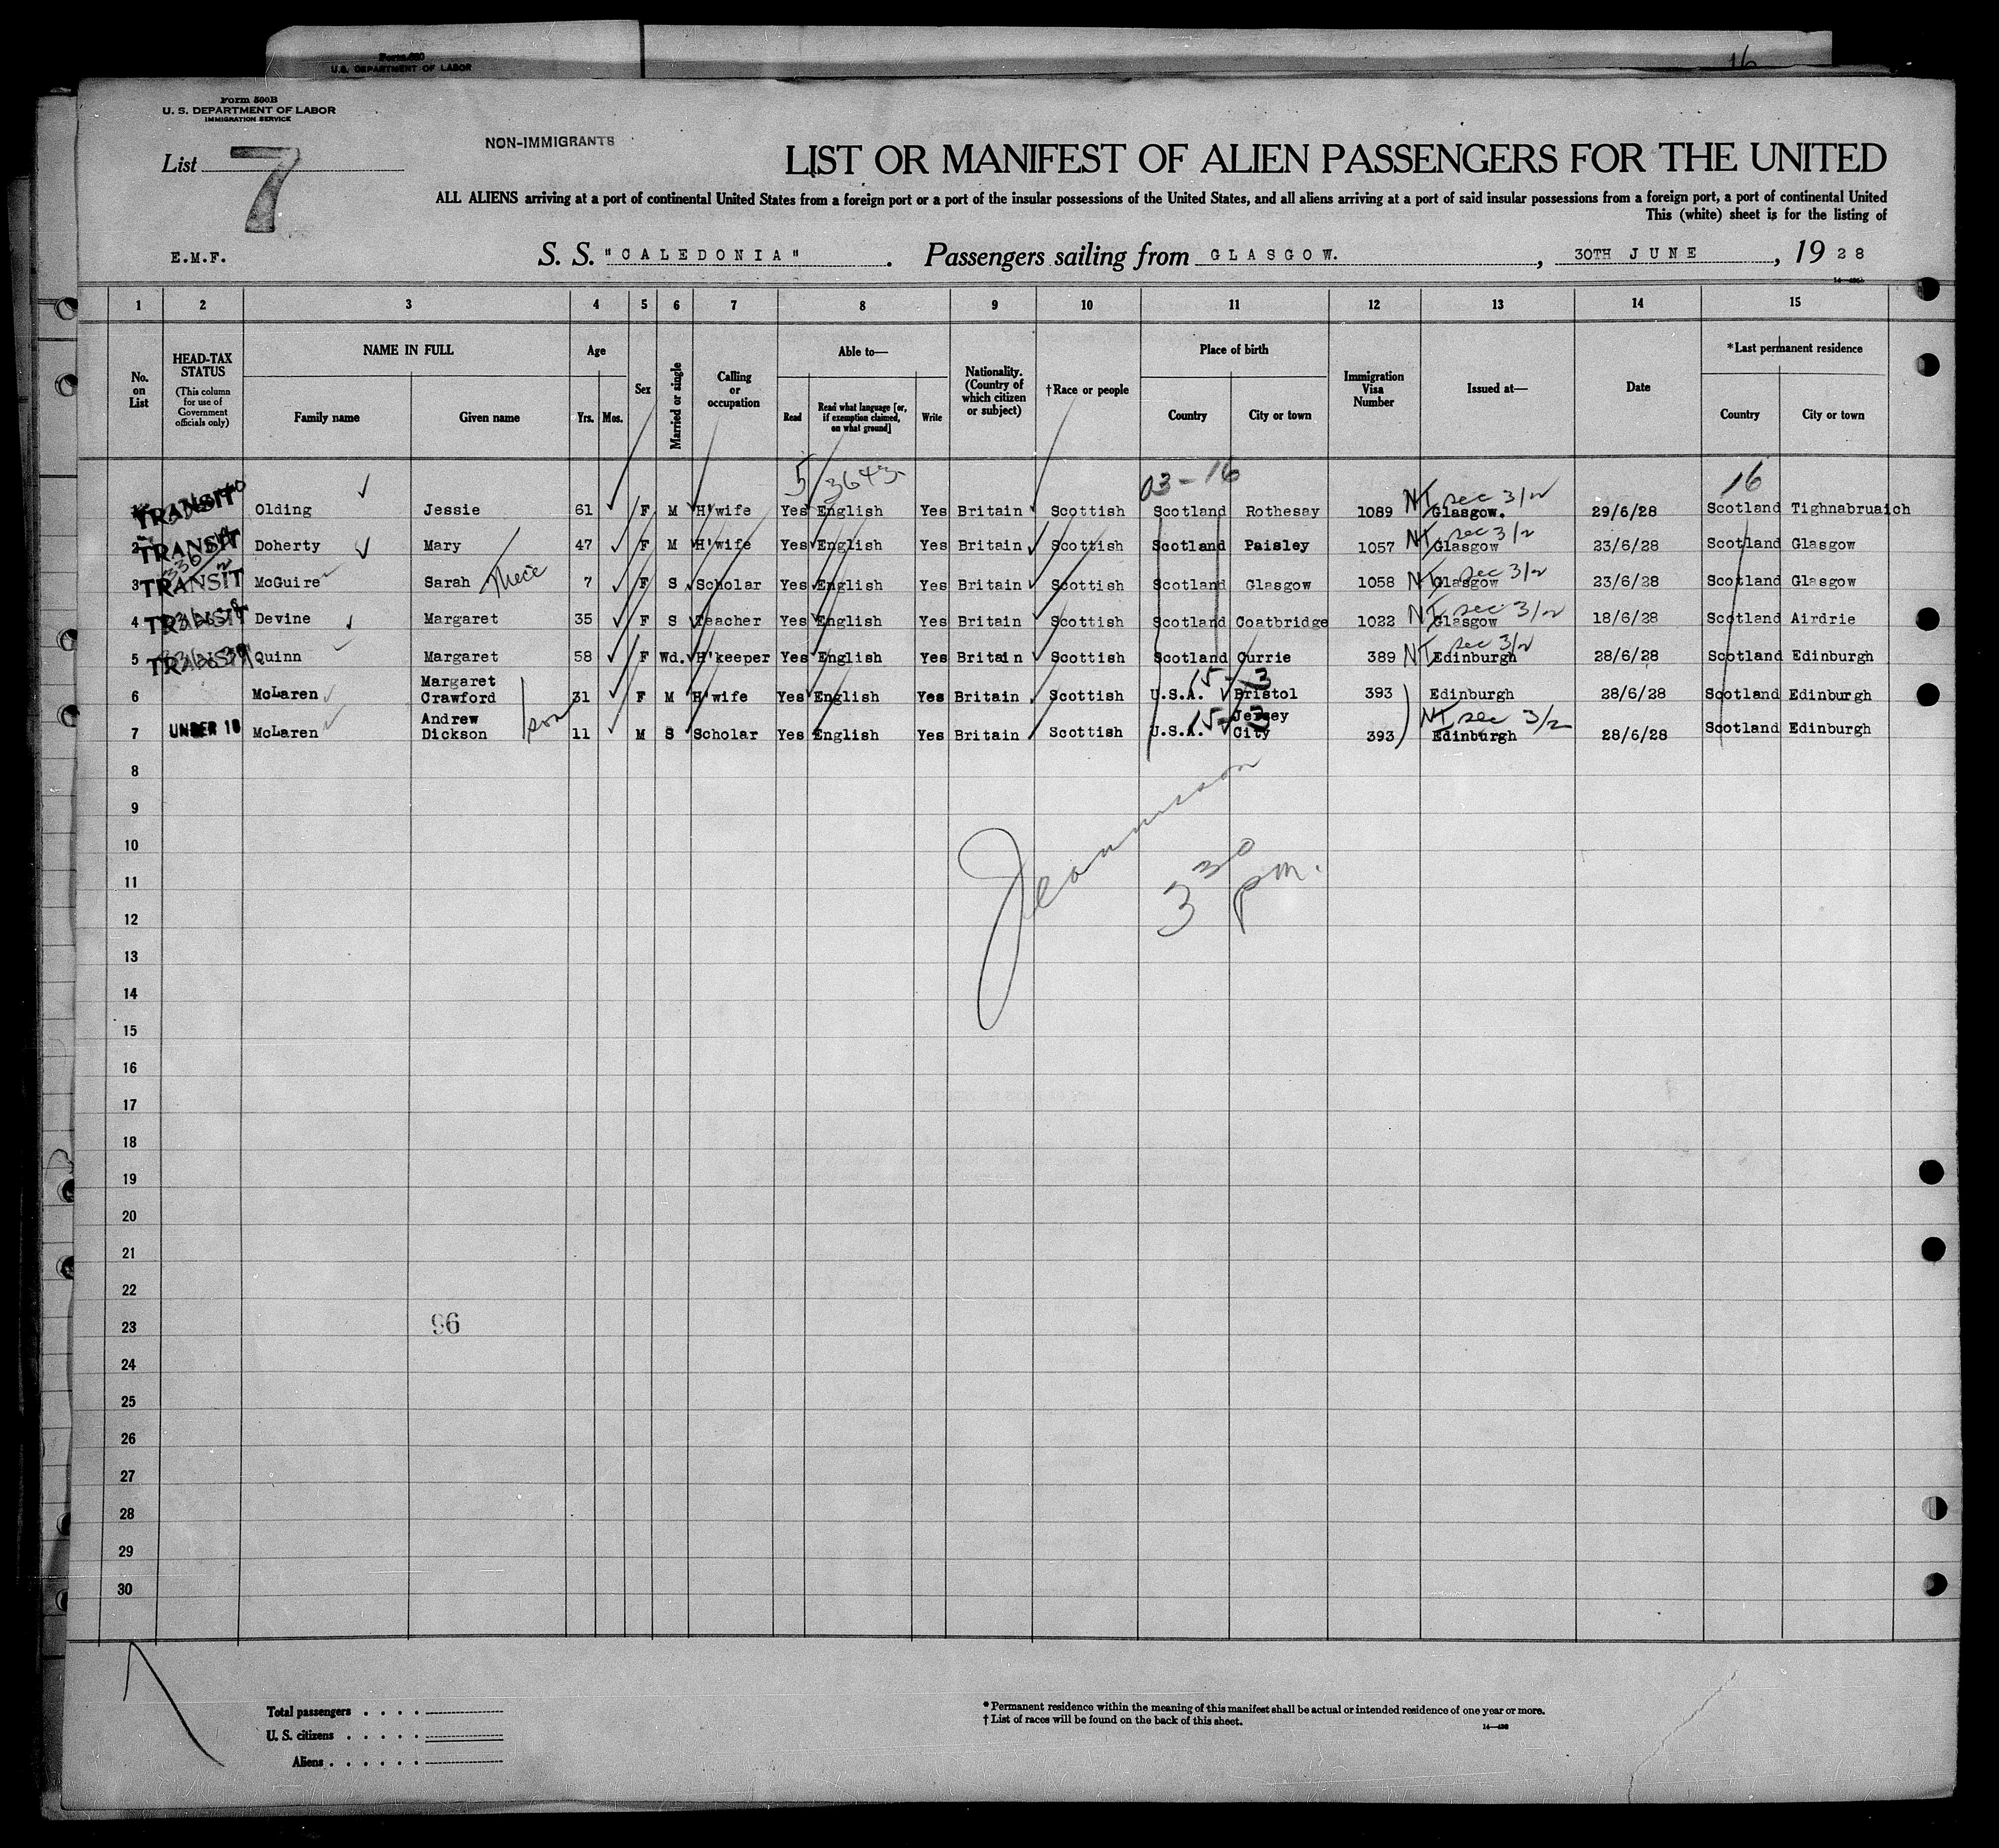 Form 630
U.S. DEPARTMENT OF LABOR
16
Form 500B
U. S. DEPARTMENT OF LABOR
IMMIGRATION SERVICE
List 7
NON-IMMIGRANTS
LIST OR MANIFEST OF ALIEN PASSENGERS FOR THE UNITED
ALL ALIENS arriving at a port of continental United States from a foreign port or a port of the insular possessions of the United States, and all aliens arriving at a port of said insular possessions from a foreign port, a port of continental United
This (white) sheet is for the listing of
E.M.F. S. S. "CALEDONIA". Passengers sailing from GLASGOW., 30TH JUNE, 1928
1 2 3 4 5 6 7 8 9 10 11 12 13 14 15
No. on List
HEAD-TAX STATUS (This column for use of Government officials only)
NAME IN FULL
Family name Given name
Age
Yrs. Mos.
Sex
Married or single
Calling or occupation
Able to—
Read Read what language [or, if exemption claimed, on what ground] Write
Nationality. (Country of which citizen or subject)
†Race or people
Place of birth
Country City or town
Immigration Visa Number
Issued at—
Date
*Last permanent residence
Country City or town
5 3643 03-16 16
TRANSIT Olding Jessie 61 F M H'wife Yes English Yes Britain Scottish Scotland Rothesay 1089 NT sec 3/2 Glasgow. 29/6/28 Scotland Tighnabruaich
2 TRANSIT Doherty Mary 47 F M H'wife Yes English Yes Britain Scottish Scotland Paisley 1057 NT sec 3/2 Glasgow 23/6/28 Scotland Glasgow
3 TRANSIT McGuire Sarah 7 F S Scholar Yes English Yes Britain Scottish Scotland Glasgow 1058 NT sec 3/2 Glasgow 23/6/28 Scotland Glasgow
4 TRANSIT Devine Margaret 35 F S Teacher Yes English Yes Britain Scottish Scotland Coatbridge 1022 NT sec 3/2 Glasgow 18/6/28 Scotland Airdrie
5 TRANSIT Quinn Margaret 58 F Wd. H'keeper Yes English Yes Britain Scottish Scotland Currie 389 NT sec 3/2 Edinburgh 28/6/28 Scotland Edinburgh
6 McLaren Margaret Crawford 31 F M H'wife Yes English Yes Britain Scottish U.S.A. 15-3 Bristol 393 Edinburgh 28/6/28 Scotland Edinburgh
7 UNDER 16 McLaren Andrew Dickson son 11 M S Scholar Yes English Yes Britain Scottish U.S.A. 15-3 Jersey City 393 NT sec 3/2 Edinburgh 28/6/28 Scotland Edinburgh
8
9
10
11
3 30 pm.
12
13
14
15
16
17
18
19
20
21
22
23 96
24
25
26
27
28
29
30
Total passengers
U. S. citizens
Aliens
* Permanent residence within the meaning of this manifest shall be actual or intended residence of one year or more.
† List of races will be found on the back of this sheet.